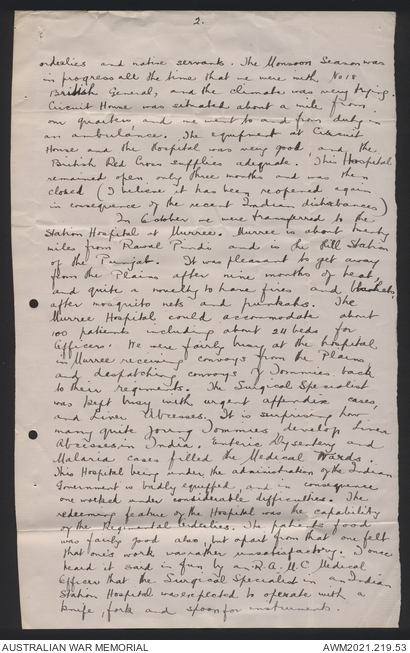 2.
orderlies and native servants. The Monsoon Season was
in progress all the time that we were with No 18
British General, and the climate was very trying.
Circuit House was situated about a mile from
our quarters and we went to and from duty in
an ambulance. The equipment at Circuit
House and the Hospital was very good and the
British Red Cross supplies adequate. This Hospital
remained open only three months and was then
closed (I believe it has been reopened again
in consequence of the recent Indian disturbances)
In October we were transferred to the
Station Hospital at Murree. Murree is about twenty
miles from Rawal Pindi and is the Hill Station
of the Punjab. It was pleasant to get away
from the Plains after nine months of heat,
and quite a novelty to have fires and blankets
after mosquito nets and punkahs. The
Murree Hospital could accommodate about
100 patients including about 24 beds for
Officers. We were fairly busy at the hospital
in Murree receiving convoys from the Plains
and despatching convoys of Tommies back
to their regiments. The Surgical Specialist
was kept busy with urgent appendix cases,
and Liver Abscesses. It is surprising how
many quite young Tommies develop Liver
Abscesses in India. Enteric Dysentery and
Malaria cases filled the Medical Wards.
This Hospital being under the administration of the Indian
Government is badly equipped, and in consequence
one worked under considerable difficulties. The
redeeming feature of the Hospital was the capability
of the Regimental orderlies. The patients food
was fairly good also, but apart from that one felt
that one's work was rather unsatisfactory. I once
heard it said in fun by an R.A.M.C Medical
Officer that the Surgical Specialist in an Indian
Station Hospital was expected to operate with a
knife, fork and spoon for instruments.
AUSTRALIAN WAR MEMORIAL
AWM2021.219.53